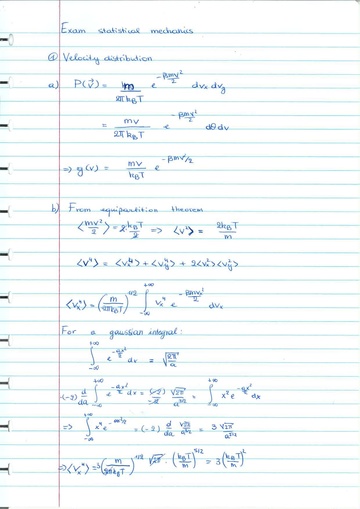 Exam statistical mechanics
① Velocity distribution
a) P(v⃗) = m / 2πk_BT e^(-βmv²/2) dv_x dv_y
= mv / 2πk_BT e^(-βmv²/2) dθdv
⇒ g(v) = mv / k_BT e^(-βmv²/2)
b) From equipartition theorem
⟨mv²/2⟩ = 2·k_BT/2 ⇒ ⟨v²⟩ = 2k_BT / m
⟨v⁴⟩ = ⟨v_x⁴⟩ + ⟨v_y⁴⟩ + 2⟨v_x²⟩⟨v_y²⟩
⟨v_x⁴⟩ = (m / 2πk_BT)^(1/2) ∫_{-∞}^{+∞} v_x⁴ e^(-βmv_x²/2) dv_x
For a gaussian integral:
∫_{-∞}^{+∞} e^(-ax²/2) dv = √(2π/a)
(-2) d/da ∫_{-∞}^{+∞} e^(-ax²/2) dx = (-2)/-2 √2π / a^(3/2) = ∫_{-∞}^{+∞} x² e^(-ax²/2) dx
⇒ ∫_{-∞}^{+∞} x⁴ e^(-ax²/2) = (-2) d/da √2π / a^(3/2) = 3 √2π / a^(5/2)
⇒ ⟨v_x⁴⟩ = 3 (m / 2πk_BT)^(1/2) √2π · (k_BT / m)^(5/2) = 3 (k_BT / m)²